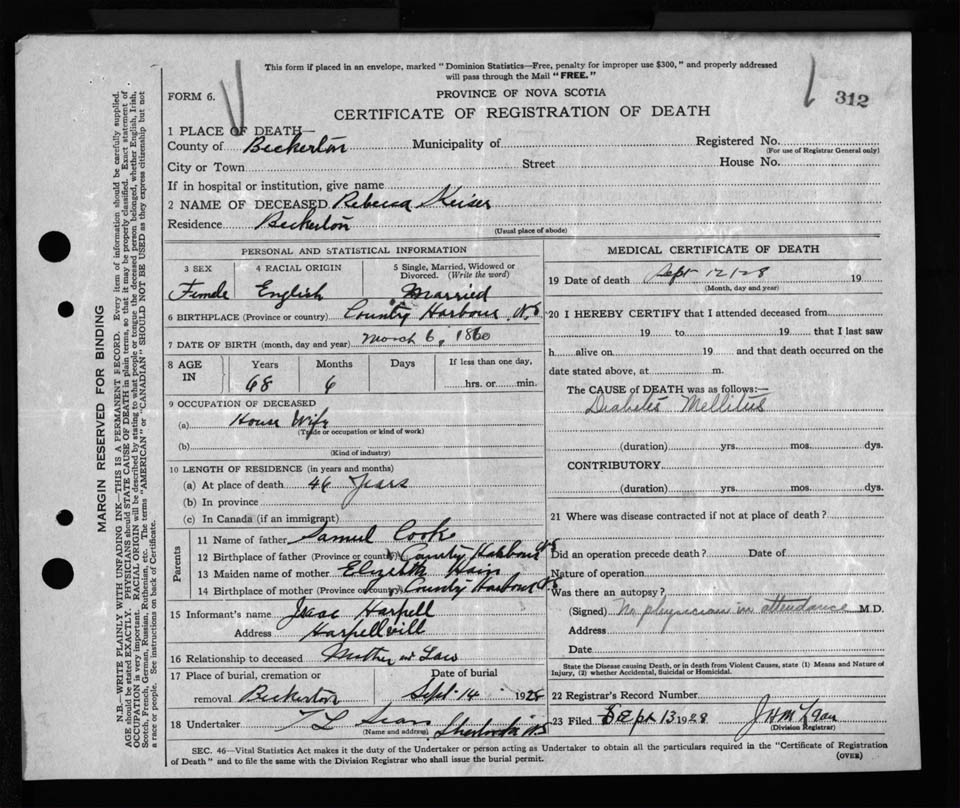 This form if placed in an envelope, marked "Dominion Statistics—Free, penalty for improper use $300," and properly addressed
will pass through the Mail "FREE."
FORM 6.
PROVINCE OF NOVA SCOTIA
312
CERTIFICATE OF REGISTRATION OF DEATH
1 PLACE OF DEATH—
County of Beckerton Municipality of Registered No.
(For use of Registrar General only)
City or Town Street House No.
If in hospital or institution, give name
2 NAME OF DECEASED Rebecca Keiser
Residence Beckerton
(Usual place of abode)
PERSONAL AND STATISTICAL INFORMATION
3 SEX 4 RACIAL ORIGIN 5 Single, Married, Widowed or
Divorced. (Write the word)
Female English Married
6 BIRTHPLACE (Province or country) County Harbour N.S
7 DATE OF BIRTH (month, day and year) March 6, 1860
8 AGE IN Years Months Days If less than one day,
68 6 hrs. or min.
9 OCCUPATION OF DECEASED
(a) House Wife
(Trade or occupation or kind of work)
(b)
(Kind of industry)
10 LENGTH OF RESIDENCE (in years and months)
(a) At place of death 46 years
(b) In province
(c) In Canada (if an immigrant)
Parents
11 Name of father Samuel Cooke
12 Birthplace of father (Province or country) County Harbour N.S
13 Maiden name of mother Elizabeth Hain
14 Birthplace of mother (Province or country) County Harbour N.S
15 Informant's name Isaac Harpell
Address Harpellvill
16 Relationship to deceased Mother in Law
17 Place of burial, cremation or Date of burial
removal Beckerton Sept-14 1928
18 Undertaker Sherbrooke N.S
(Name and address)
MEDICAL CERTIFICATE OF DEATH
19 Date of death Sept 12/28 19
(Month, day and year)
20 I HEREBY CERTIFY that I attended deceased from
19 to 19 that I last saw
h alive on 19 and that death occurred on the
date stated above, at m.
The CAUSE of DEATH was as follows:—
Diabetes Mellitus
(duration) yrs. mos. dys.
CONTRIBUTORY
(duration) yrs. mos. dys.
21 Where was disease contracted if not at place of death?
Did an operation precede death? Date of
Nature of operation
Was there an autopsy?
(Signed) No physician in attendance M.D.
Address
Date
State the Disease causing Death, or in death from Violent Causes, state (1) Means and Nature of
Injury, (2) whether Accidental, Suicidal or Homicidal.
22 Registrar's Record Number
23 Filed Sept 13 1928
(Division Registrar)
SEC. 46—Vital Statistics Act makes it the duty of the Undertaker or person acting as Undertaker to obtain all the particulars required in the "Certificate of Registration
of Death" and to file the same with the Division Registrar who shall issue the burial permit. (OVER)
MARGIN RESERVED FOR BINDING
N.B.—WRITE PLAINLY WITH UNFADING INK—THIS IS A PERMANENT RECORD. Every item of information should be carefully supplied.
AGE should be stated EXACTLY. PHYSICIANS should STATE CAUSE OF DEATH in plain terms, so that it may be properly classified. Exact statement of
OCCUPATION is very important. RACIAL ORIGIN will be described by stating to what people or tongue the deceased person belonged, whether English, Irish,
Scotch, French, German, Russian, Ruthenian, etc. The terms "AMERICAN" or "CANADIAN" SHOULD NOT BE USED as they express citizenship but not
a race or people. See instructions on back of Certificate.